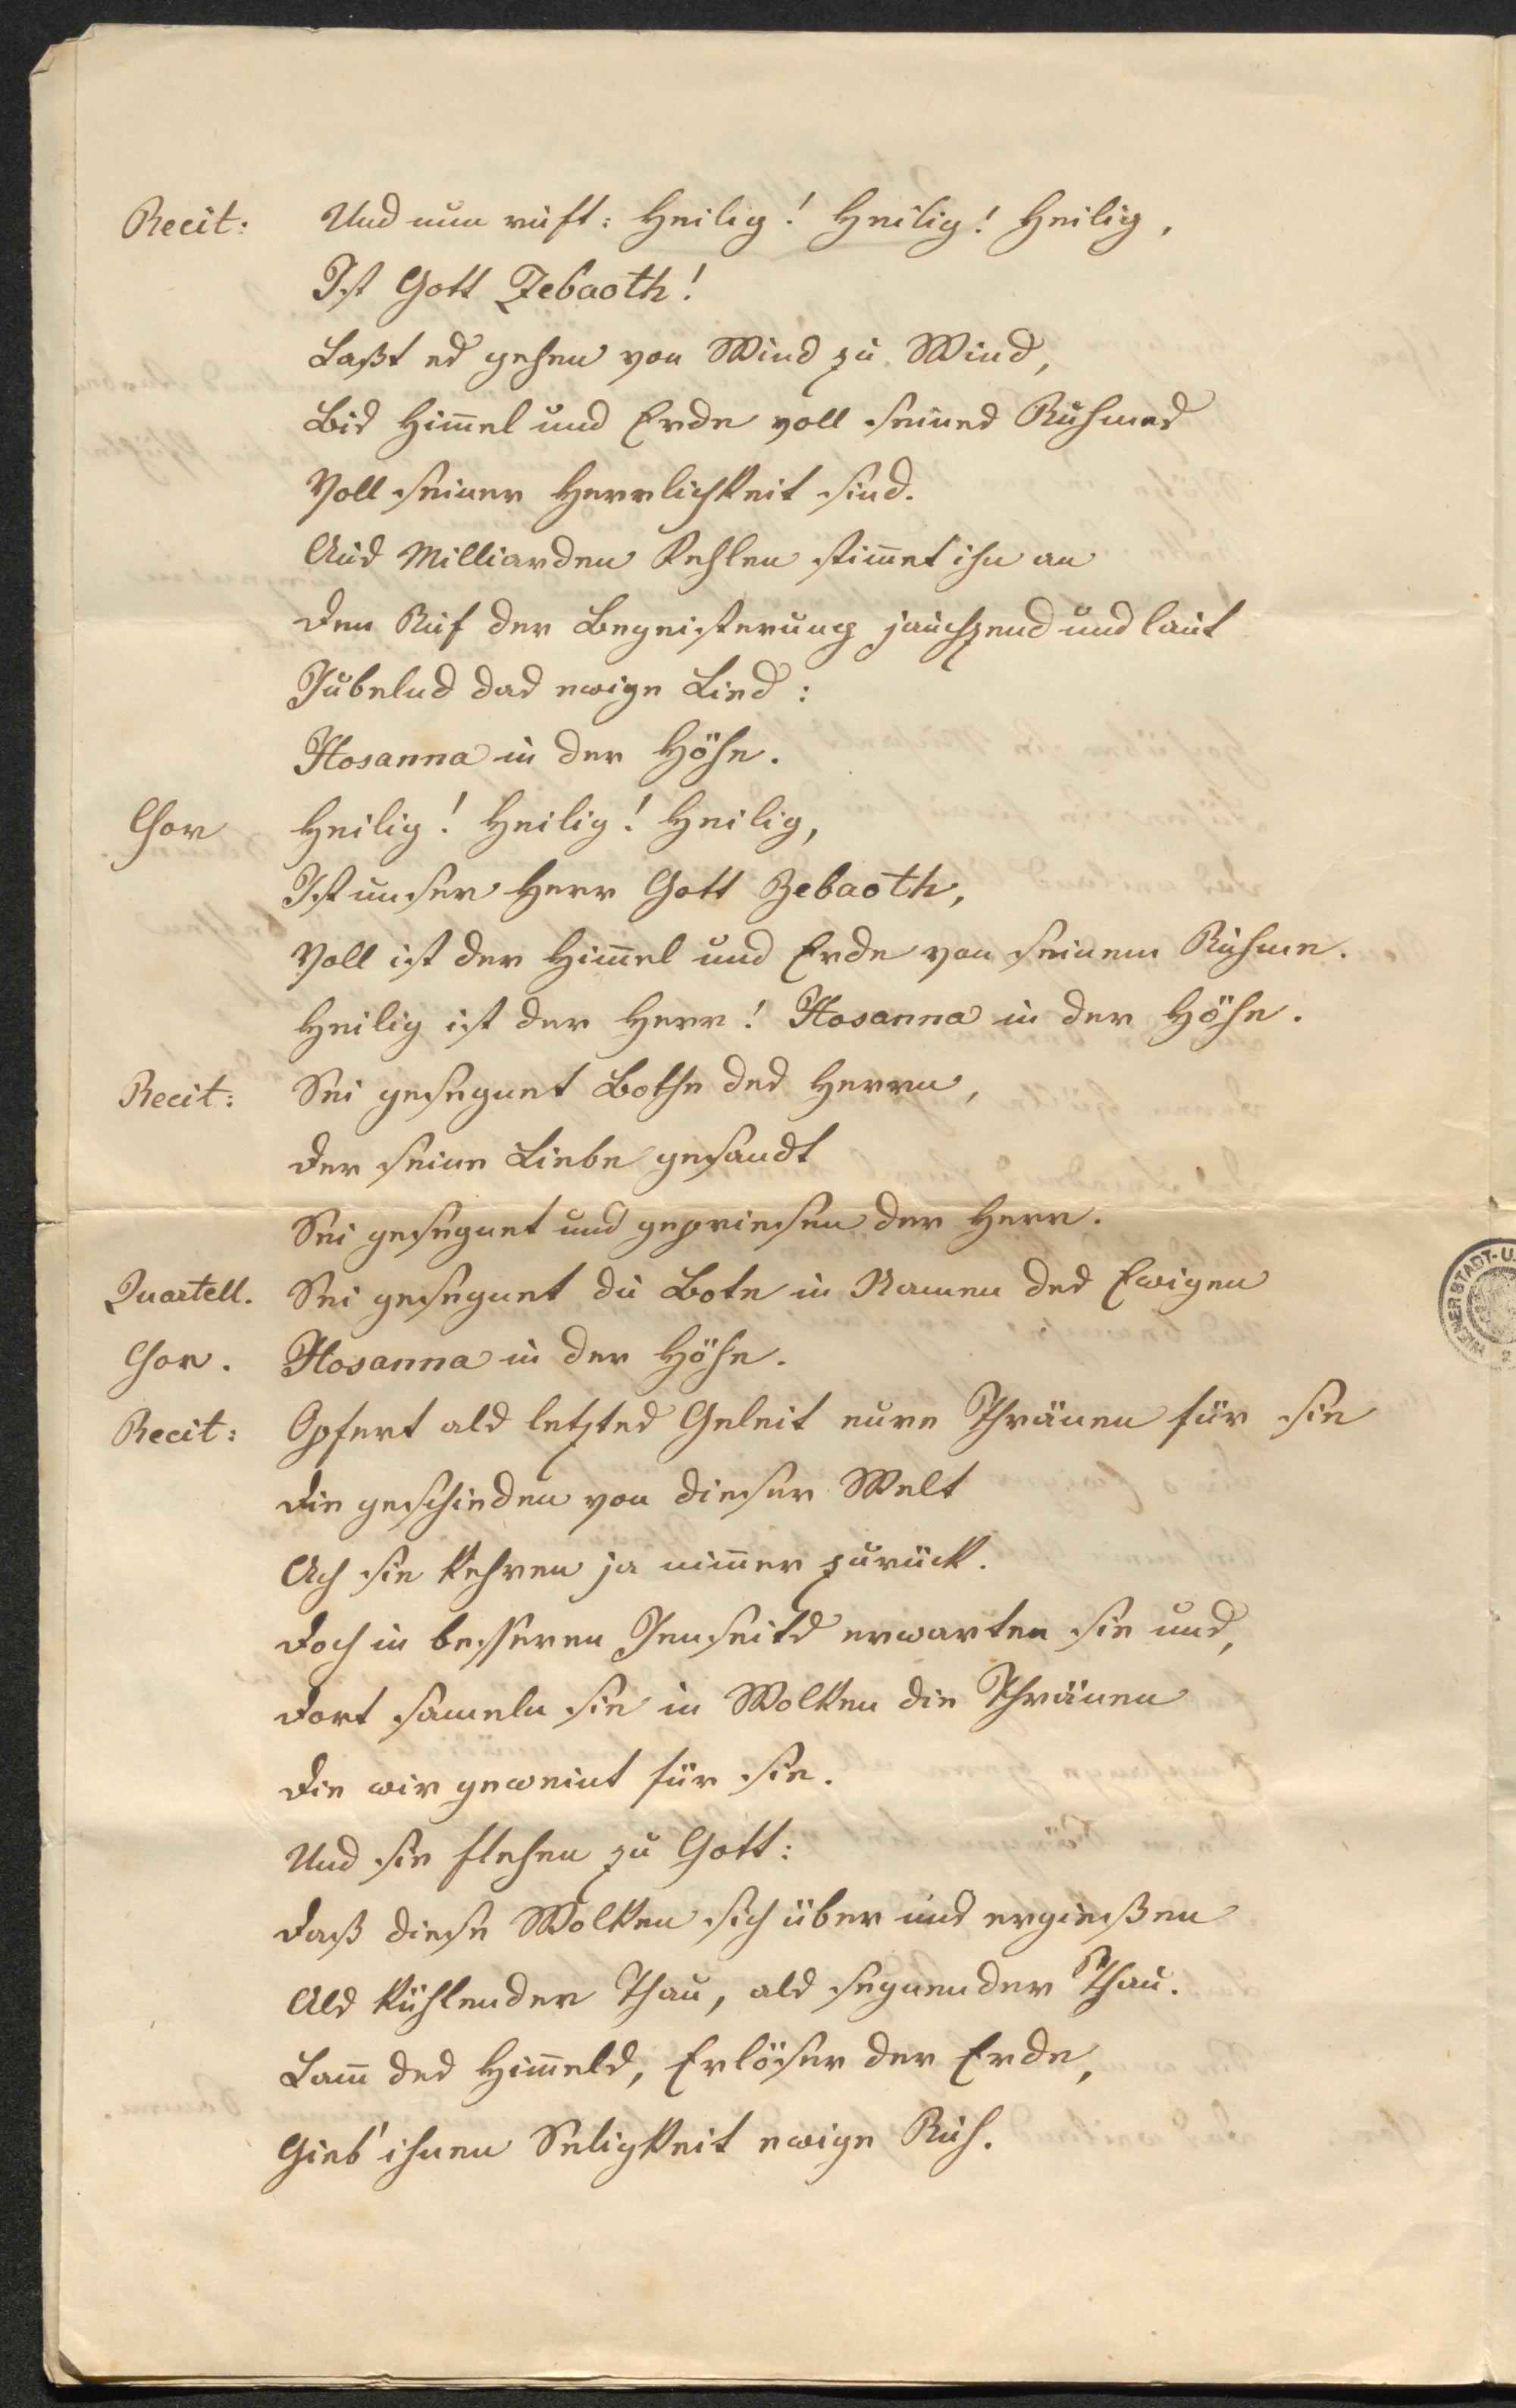 Recit: Und nun ruft: Heilig! Heilig! Heilig,
Ist Gott Zebaoth!
Laßt es gehen von Wind zu Wind,
Bis Him̄el und Erde voll seines Ruhmes
Voll seiner Herrlichkeit sind.
Aus Milliarden Kehlen stim̄et ihn an
Den Ruf der Begeisterung jauchzend und laut
Jubelnd das ewige Lied:
Hosanna in der Höhe.
Chor Heilig! Heilig! Heilig,
Ist unser Herr Gott Zebaoth,
Voll ist der Him̄el und Erde von seinem Ruhme.
Heilig ist der Herr! Hosanna in der Höhe.
Recit: Sei gesegnet Bothe des Herrn,
Der seine Liebe gesandt
Sei gesegnet und gepriesen der Herr.
Quartett. Sei gesegnet du Bote in Namen des Ewigen
Chor. Hosanna in der Höhe.
Recit: Opfert als letztes Geleit eure Thränen für sie
Die geschieden von dieser Welt
Ach sie kehren ja nim̄er zurück.
Doch in besseren Jenseits erwarten sie uns,
Dort sam̄eln sie in Wolken die Thränen
Die wir geweint für sie.
Und sie flehen zu Gott:
Daß diese Wolken sich über uns ergießen
Als kühlender Thau, als segnender Thau.
Lam̄ des Him̄els, Erlöser der Erde,
Gieb' ihnen Seligkeit ewige Ruh.
WIENER STADT-U.